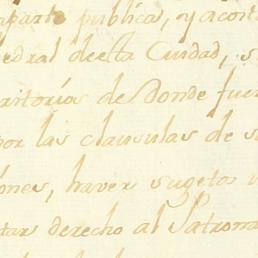 aparte publica, y acost
edral desta Ciudad, s
rritorios de Donde fuer
por las clausulas de s
ones, haver sugetos
tar derecho al Patrona